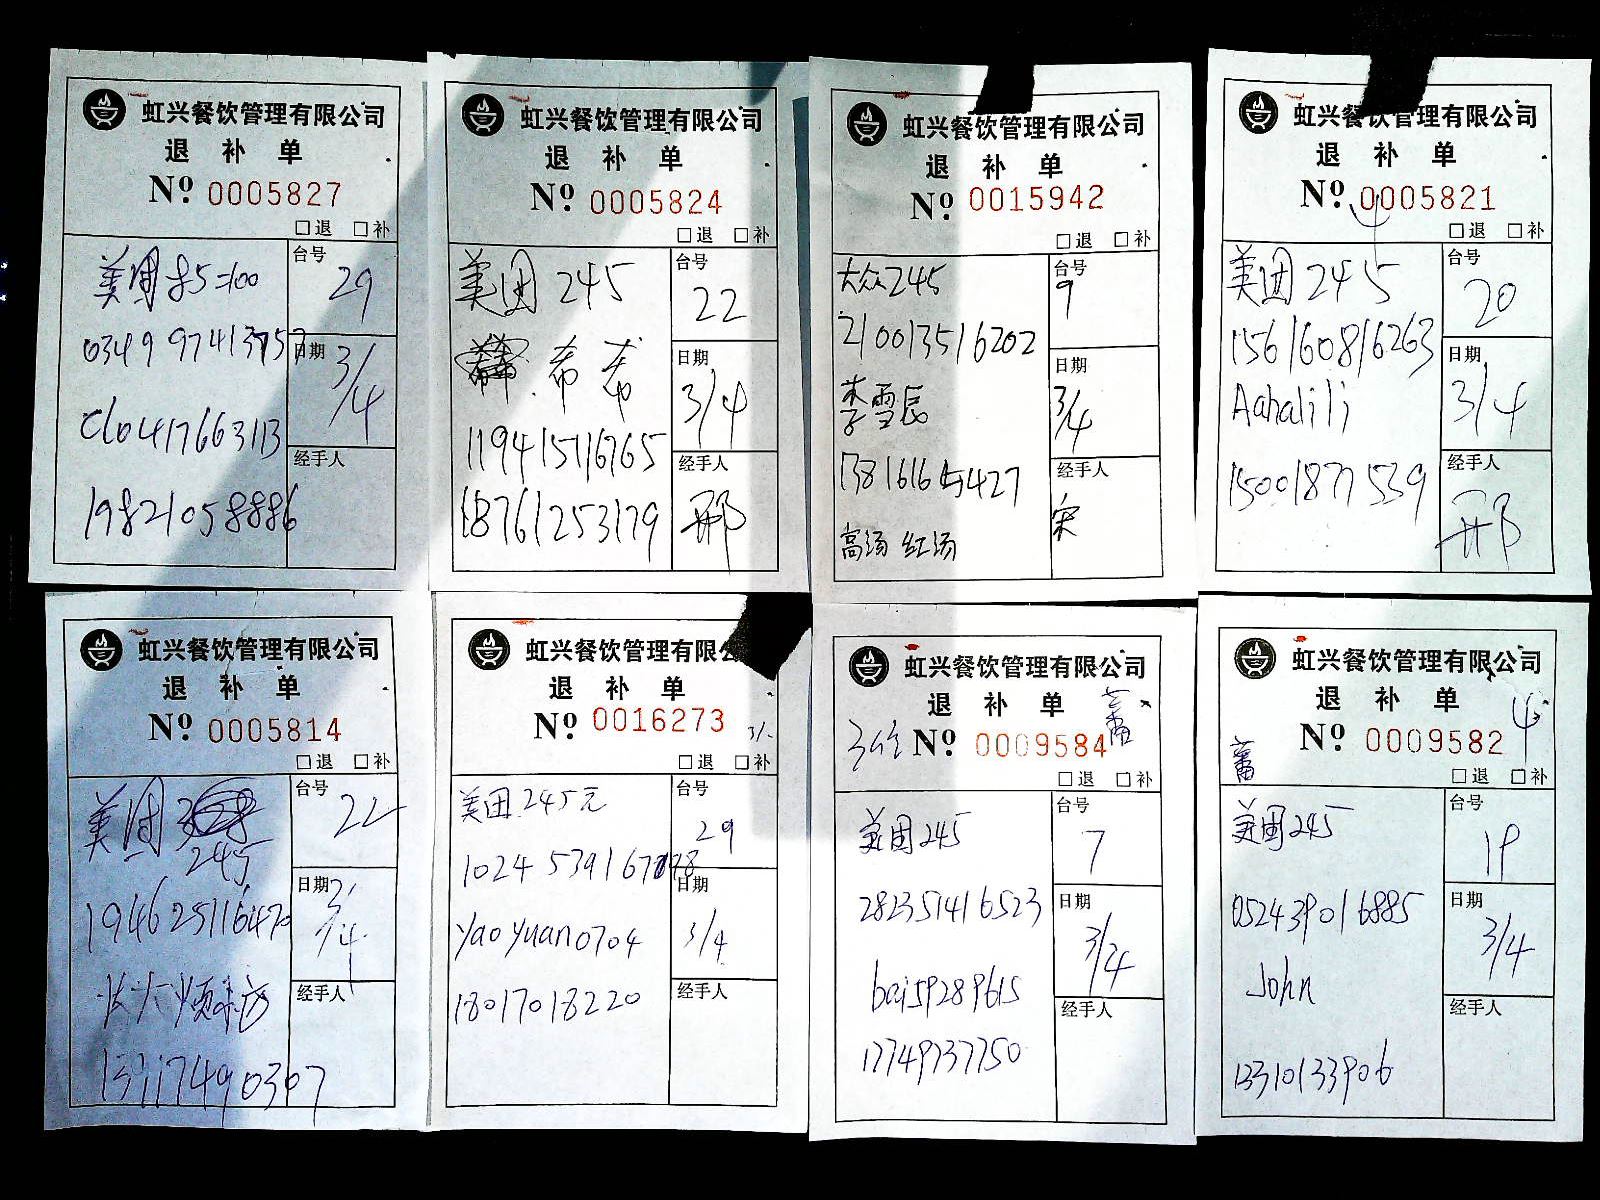 虹兴餐饮管理有限公司
退 补 单
Nº 0005827
□退 □补
美团85=100
台号
29
0349 974137157
日期
3/4
cl0417663113
经手人
19821058886
虹兴餐饮管理有限公司
退 补 单
Nº 0005824
□退 □补
美团 245
台号
22
希希
日期
3/4
119415716765
经手人
18761253179
邢
虹兴餐饮管理有限公司
退 补 单
Nº 0015942
□退 □补
大众245
台号
9
210013516202
日期
3/4
李雪辰
经手人
13816165427
宋
高汤 红汤
虹兴餐饮管理有限公司
退 补 单
Nº 0005821
□退 □补
美团 245
台号
20
156160816263
日期
3/4
Aahalili
经手人
15001877539
邢
虹兴餐饮管理有限公司
退 补 单
Nº 0005814
□退 □补
美团
245
台号
22
194625116470
日期
3/4
经手人
13917490307
虹兴餐饮管理有限公
退 补 单
Nº 0016273
3/
□退 □补
美团245元
台号
29
1024 53916778
日期
3/4
yaoyuan0704
经手人
18017018220
虹兴餐饮管理有限公司
退 补 单
3份 Nº 0009584
□退 □补
美团245
台号
7
282351416523
日期
3/4
bai59289615
经手人
17749737750
虹兴餐饮管理有限公司
退 补 单
Nº 0009582
4
□退 □补
美团245
台号
19
052439016885
日期
3/4
John
经手人
13310133906